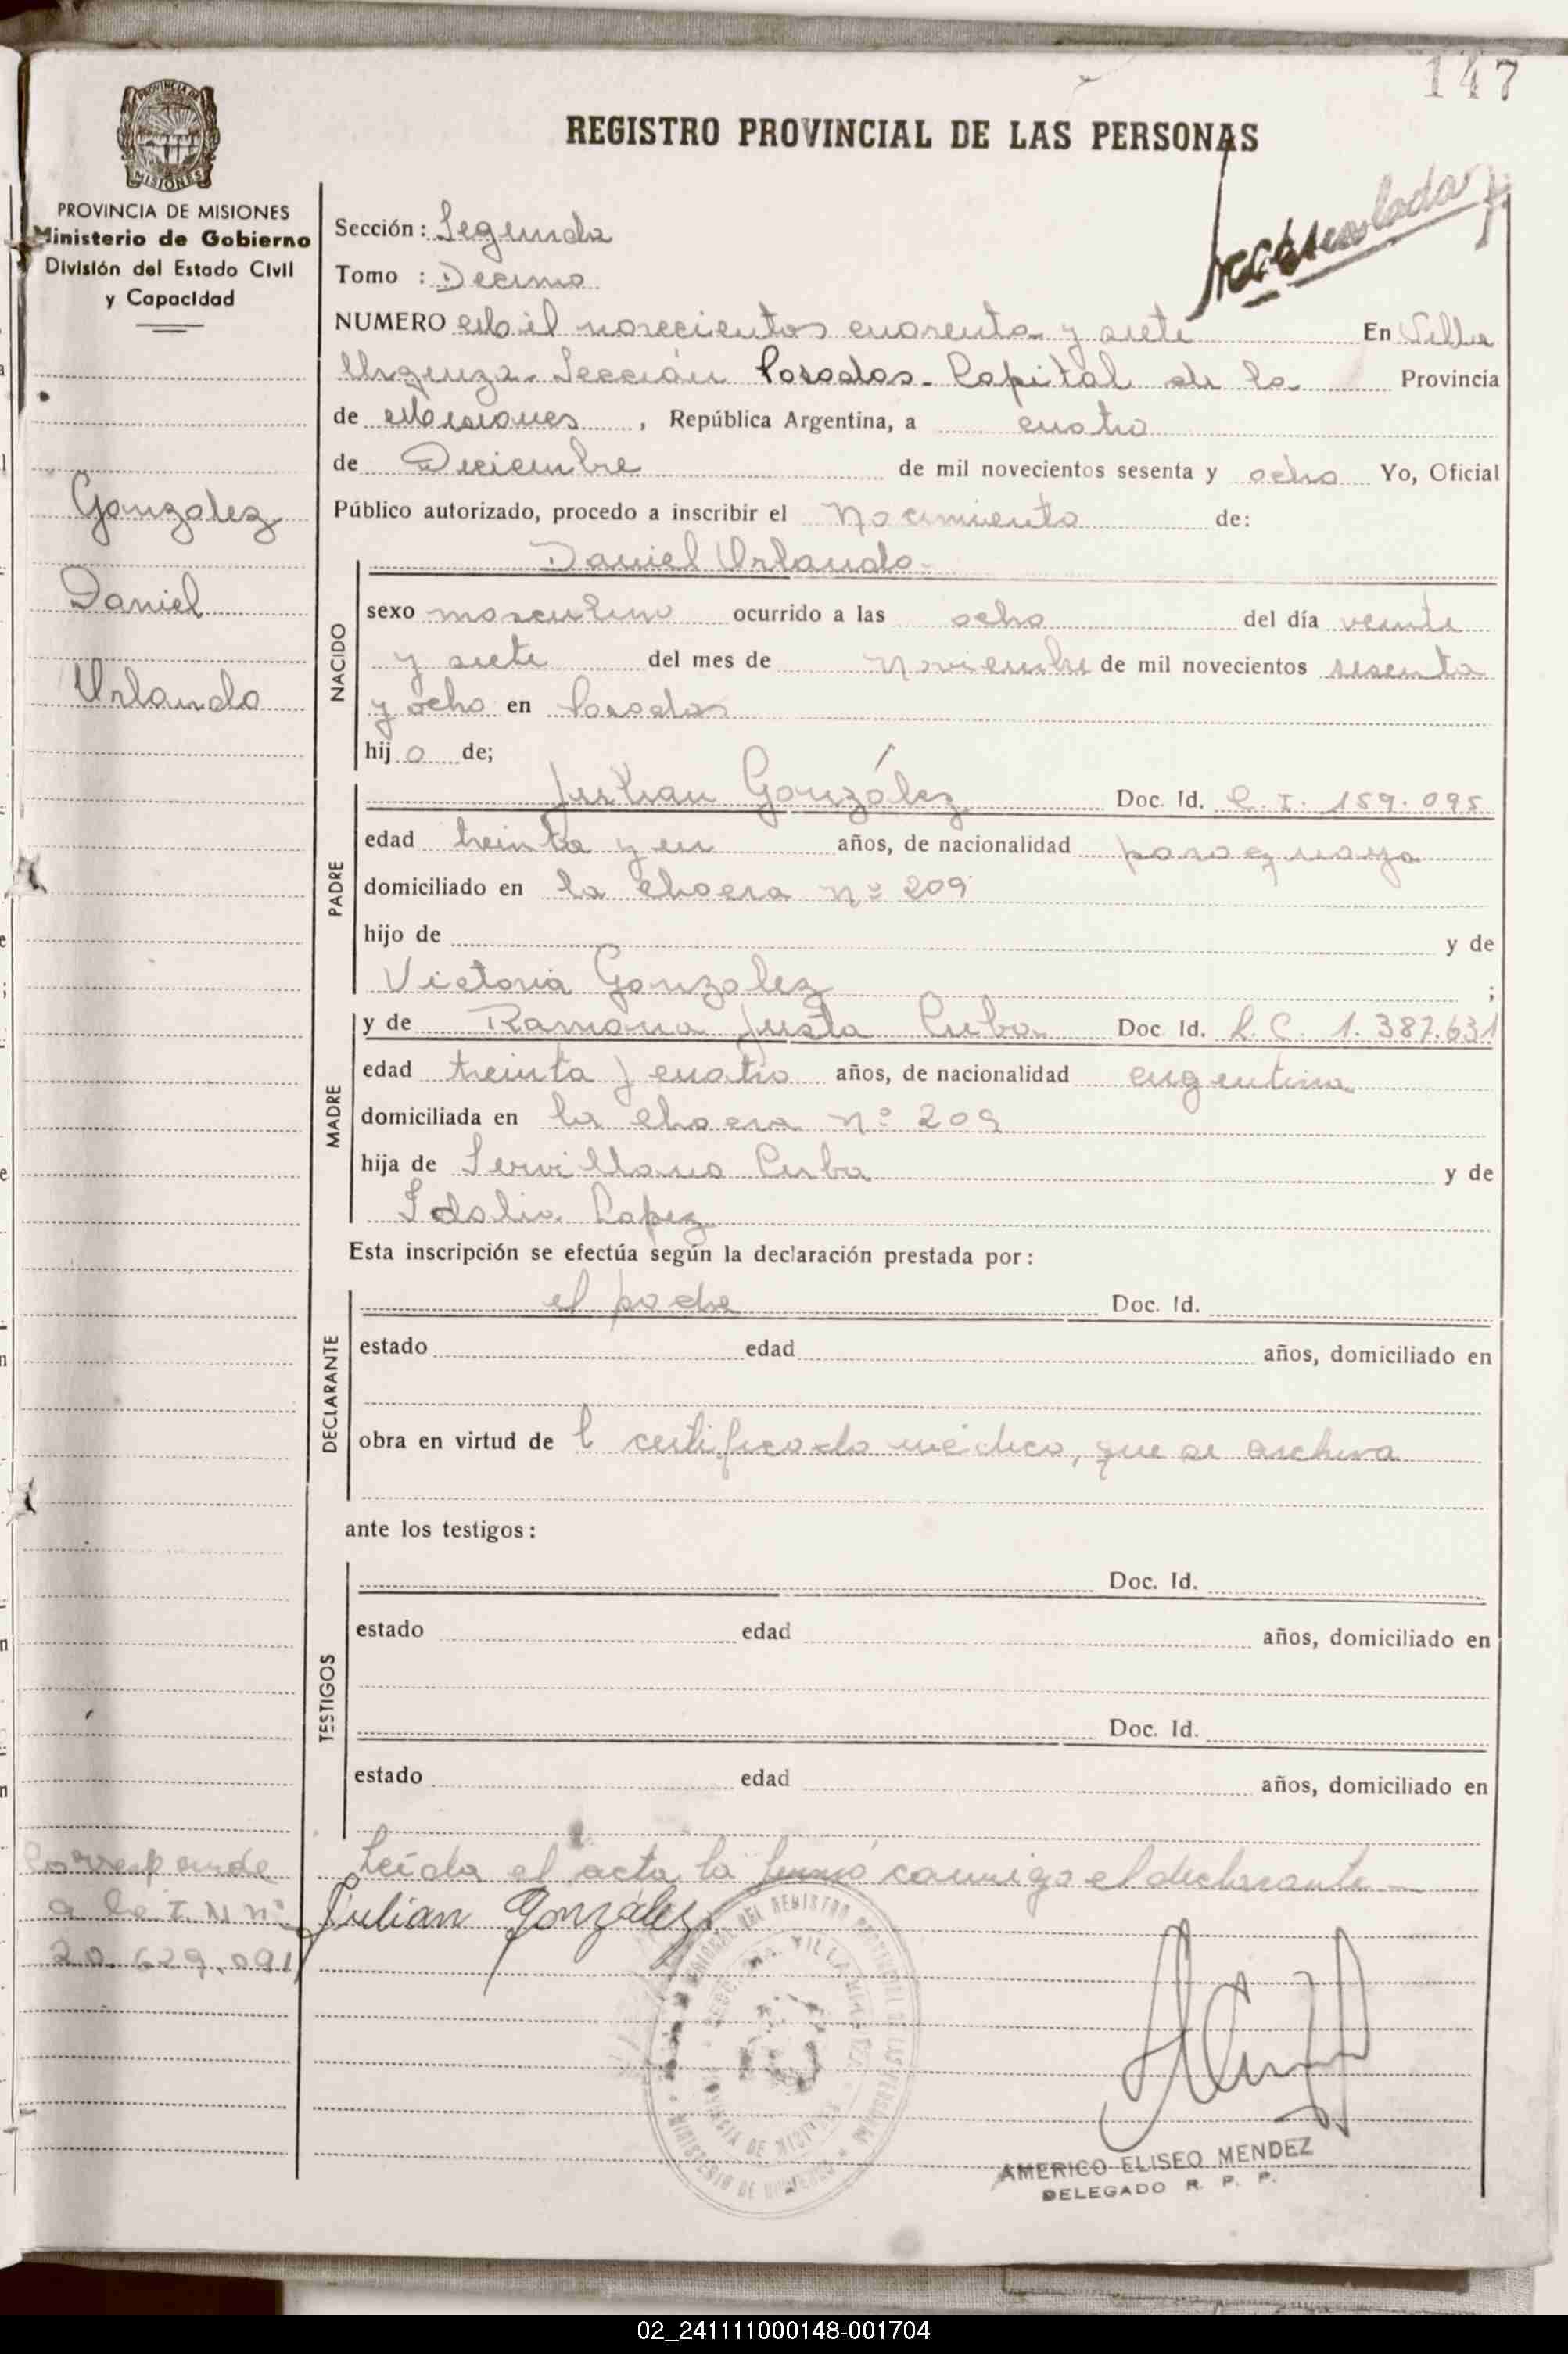 147
REGISTRO PROVINCIAL DE LAS PERSONAS
PROVINCIA DE MISIONES
Ministerio de Gobierno
División del Estado Civil
y Capacidad
Gonzalez
Daniel
Orlando
Sección: Segunda
Tomo : Decimo
NUMERO Mil novecientos cuarenta y siete En Villa
Urquiza. Sección Posadas. Capital de la Provincia
de Misiones, República Argentina, a cuatro
de Diciembre de mil novecientos sesenta y ocho Yo, Oficial
Público autorizado, procedo a inscribir el Nacimiento de:
Daniel Orlando
NACIDO
sexo masculino ocurrido a las ocho del día veinte
y siete del mes de noviembre de mil novecientos sesenta
y ocho en Posadas
hijo de;
PADRE
Julian González Doc. Id. C.I. 159.095
edad treinta y un años, de nacionalidad paraguaya
domiciliado en la chacra nº 209
hijo de y de
Victoria Gonzalez ;
MADRE
y de Ramona Justa Doc. Id. L.C. 1.387.631
edad treinta y cuatro años, de nacionalidad argentina
domiciliada en la chacra nº 209
hija de Servillano y de
Idalia Lopez
Esta inscripción se efectúa según la declaración prestada por:
DECLARANTE
el padre Doc. Id.
estado edad años, domiciliado en
obra en virtud de l certificado médico, que se archiva
ante los testigos:
TESTIGOS
Doc. Id.
estado edad años, domiciliado en
Doc. Id.
estado edad años, domiciliado en
Leída el acta, la firmó conmigo el declarante.—
Corresponde
a la I.N nº
20.629.091
Julian González
AMERICO ELISEO MENDEZ
DELEGADO R. P. P.
02_241111000148-001704